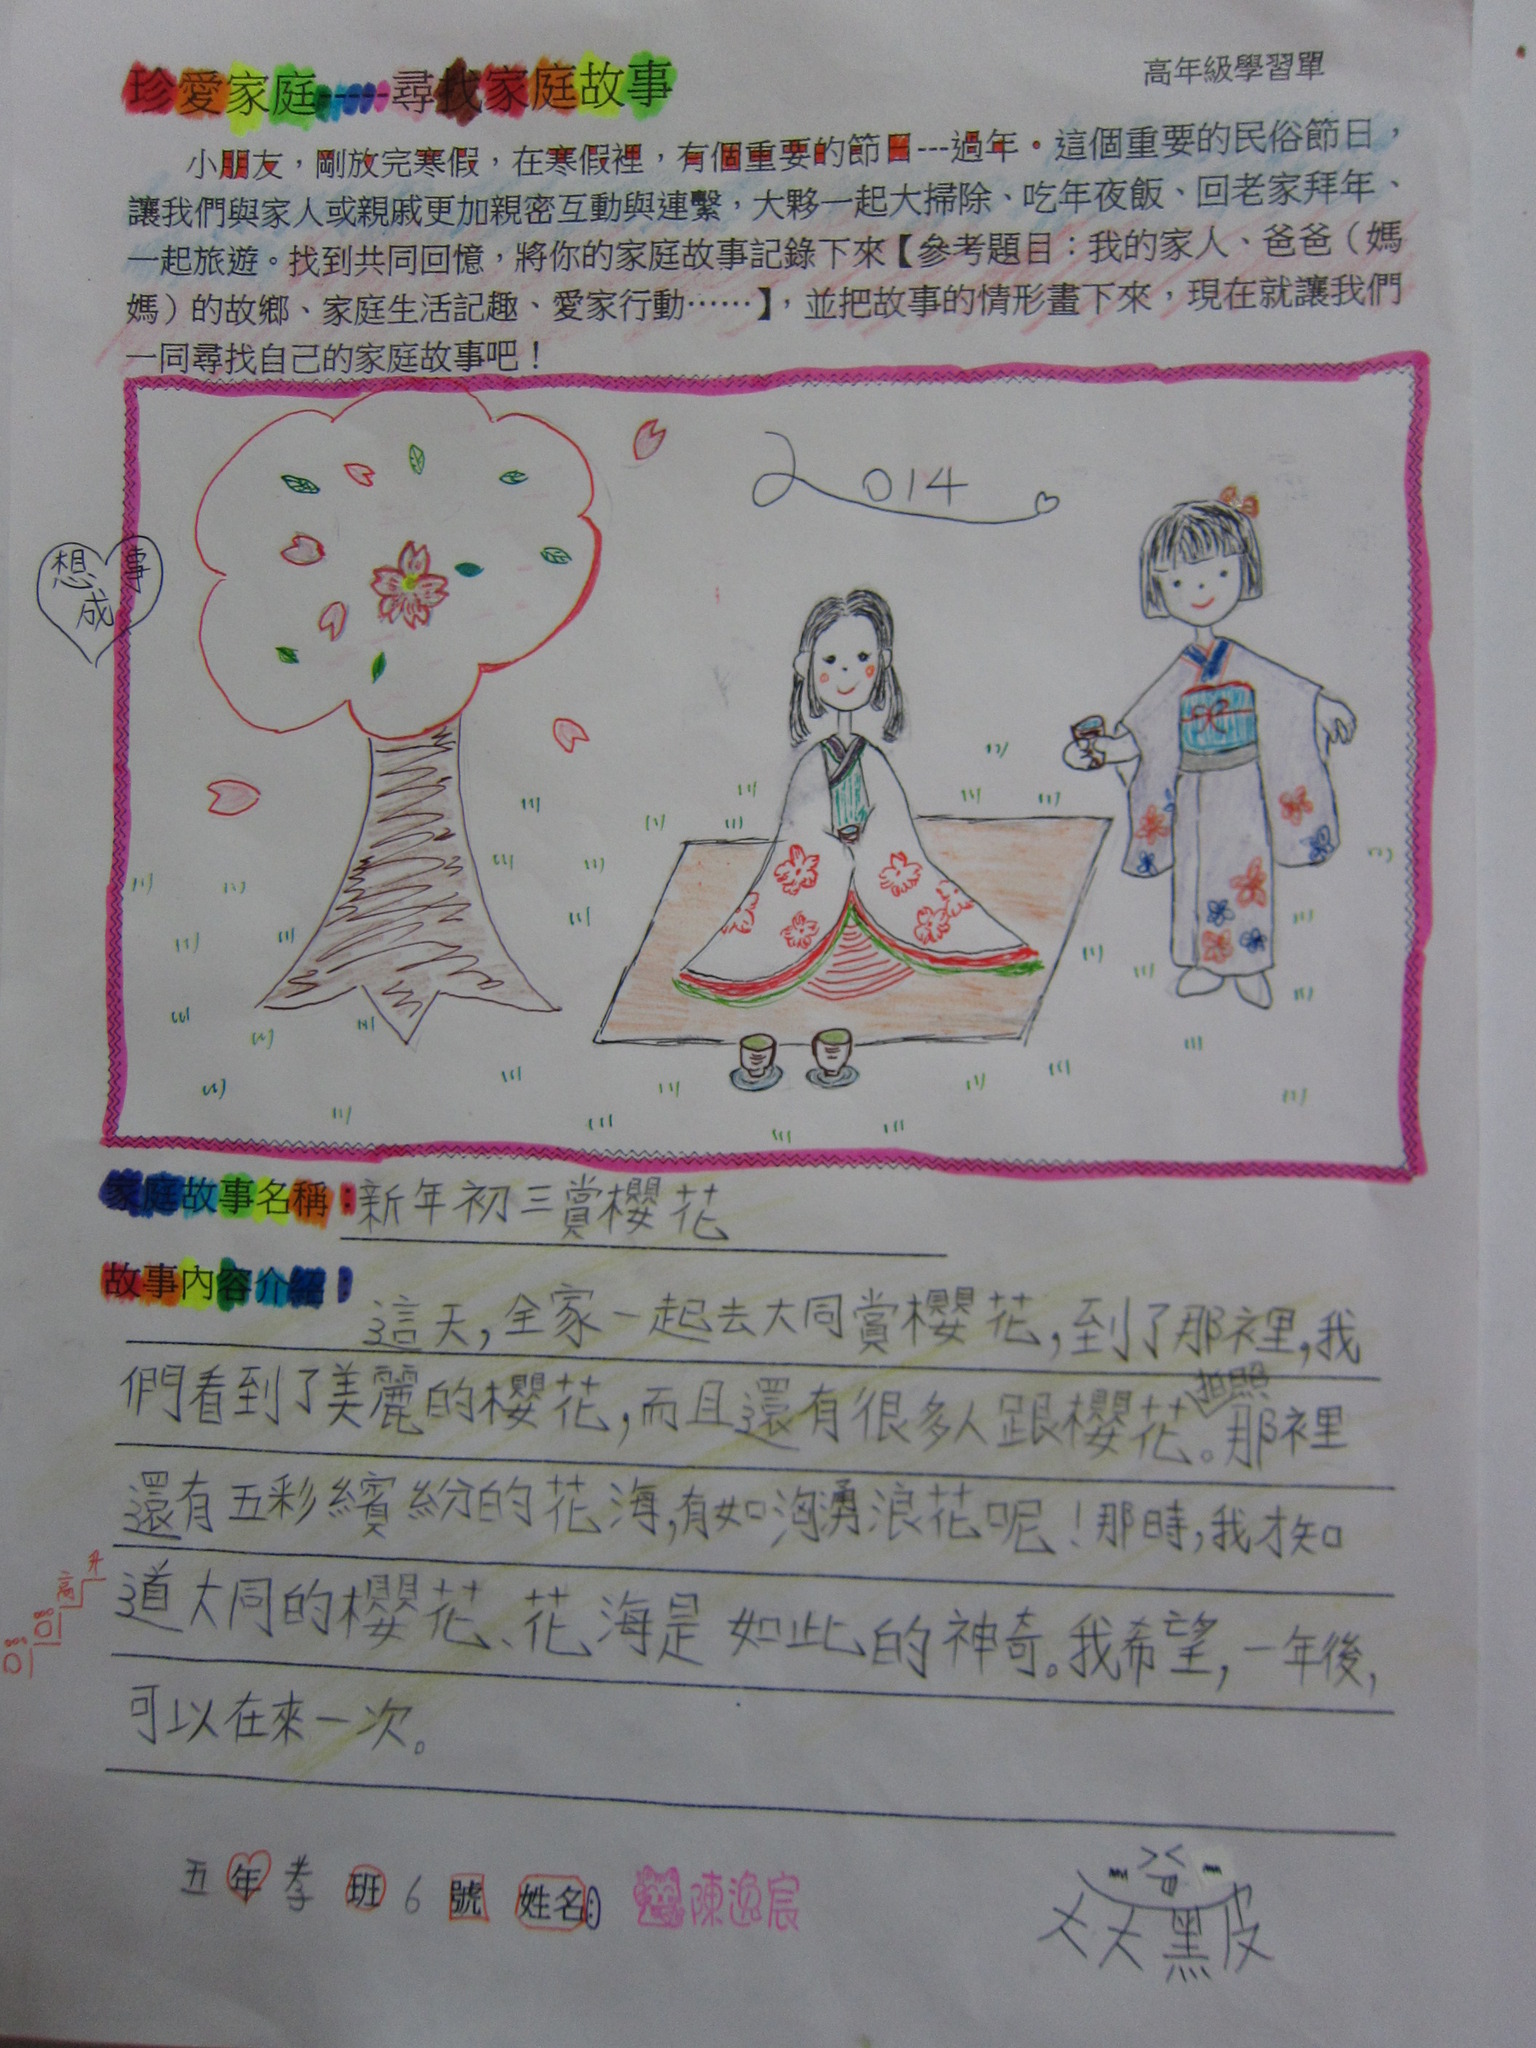 珍愛家庭-----尋找家庭故事
高年級學習單
小朋友，剛放完寒假，在寒假裡，有個重要的節日---過年。這個重要的民俗節日，
讓我們與家人或親戚更加親密互動與連繫，大夥一起大掃除、吃年夜飯、回老家拜年、
一起旅遊。找到共同回憶，將你的家庭故事記錄下來【參考題目：我的家人、爸爸（媽
媽）的故鄉、家庭生活記趣、愛家行動……】，並把故事的情形畫下來，現在就讓我們
一同尋找自己的家庭故事吧！
2014
想事成
家庭故事名稱：新年初三賞櫻花
故事內容介紹：
這天，全家一起去大同賞櫻花，到了那裡，我
們看到了美麗的櫻花，而且還有很多人跟櫻花拍照。那裡
還有五彩繽紛的花海，有如洶湧浪花呢！那時，我才知
道大同的櫻花、花海是如此的神奇。我希望，一年後，
可以在來一次。
五年孝班6號 姓名：陳逸宸
大大黑皮